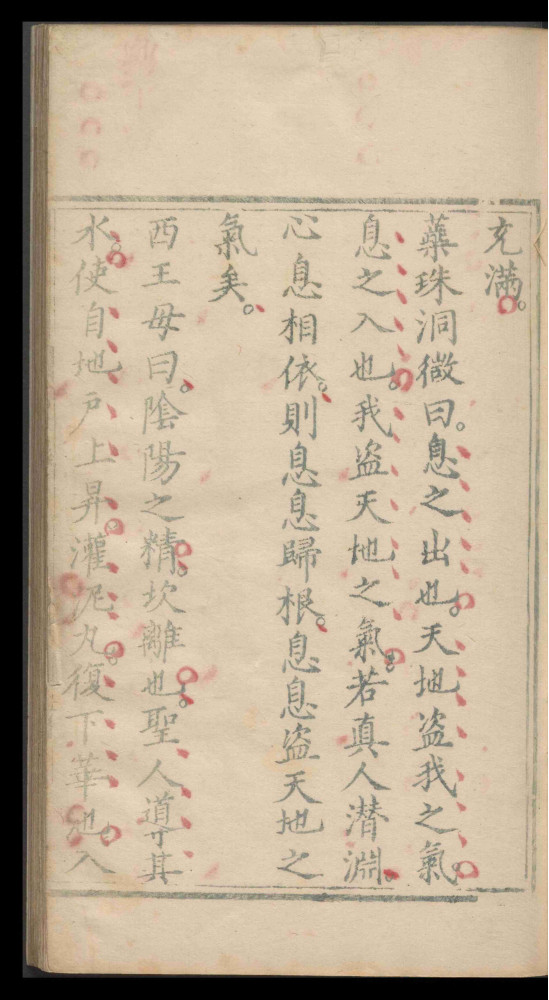 充滿。
蘂珠洞微曰。息之出也。天地盗我之氣。
息之入也。我盗天地之氣。若真人潜淵。
心息相依。則息息歸根。息息盗天地之
氣矣。
西王母曰。陰陽之精。坎離也。聖人導其
水。使自地戸上昇。灌泥丸。復下華池。入